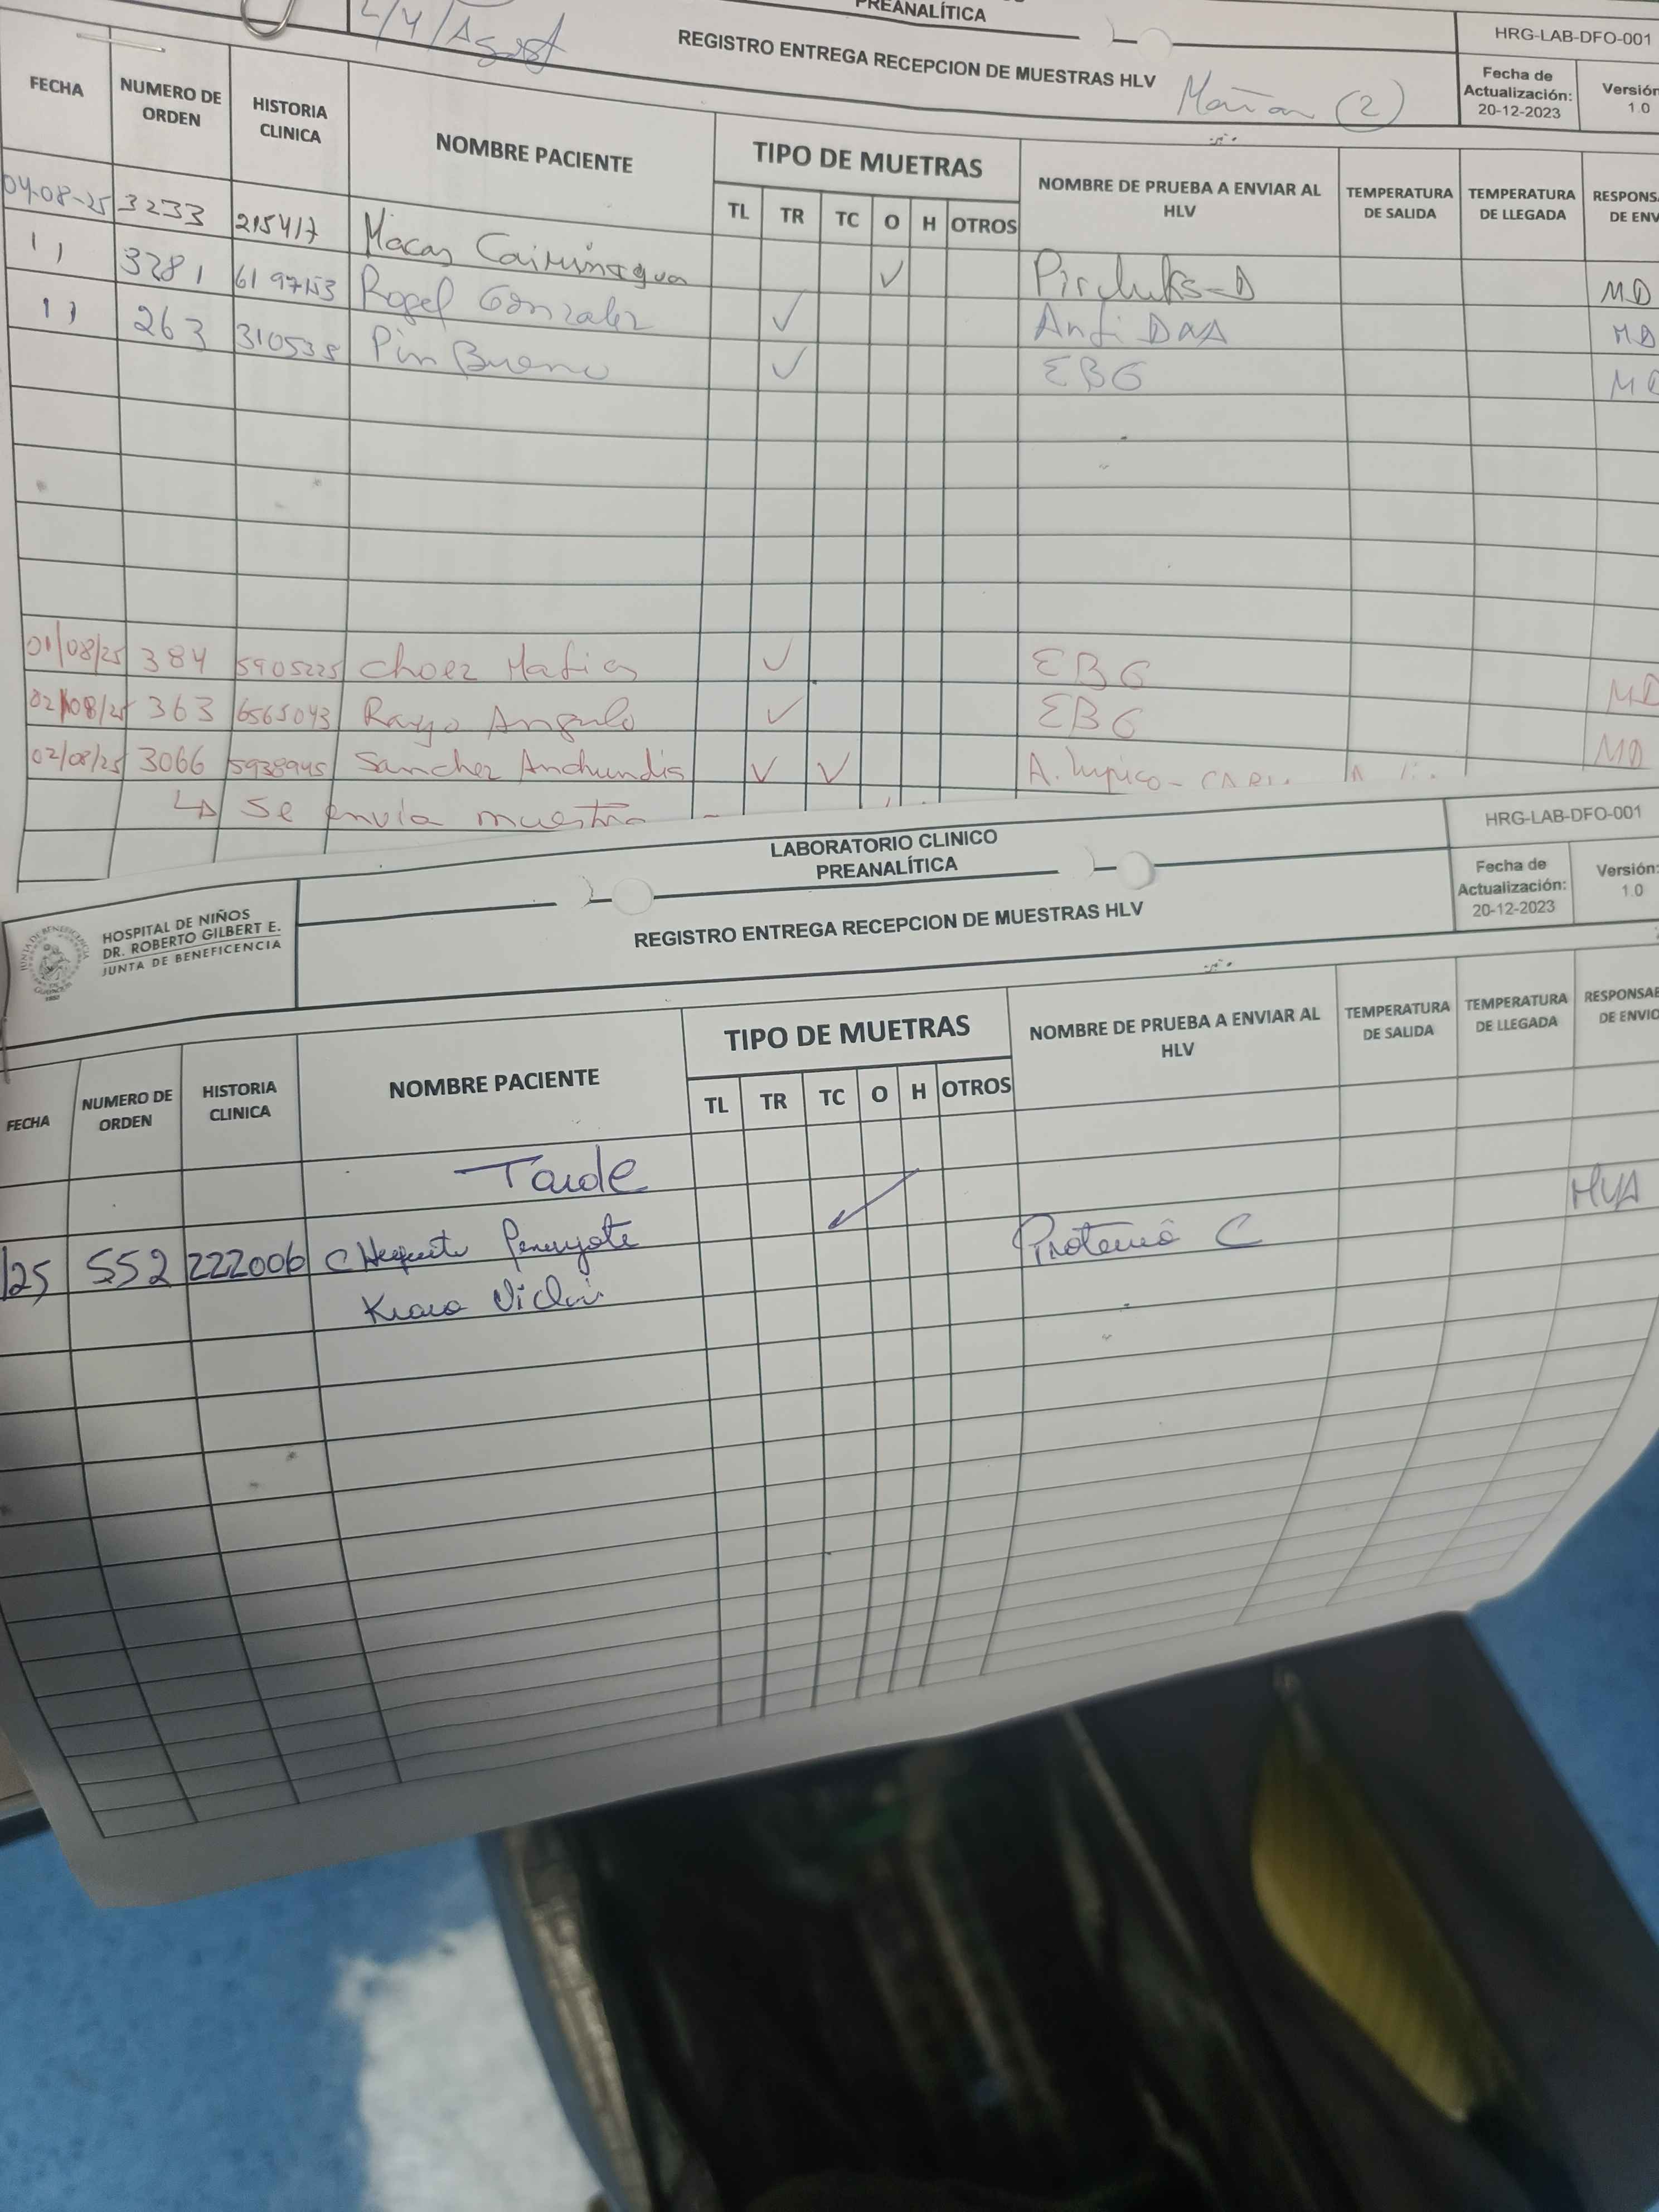 PREANALÍTICA
L/4/Agost
REGISTRO ENTREGA RECEPCION DE MUESTRAS HLV
Mañana (2)
HRG-LAB-DFO-001
Fecha de Actualización: 20-12-2023
Versión 1.0
FECHA NUMERO DE ORDEN HISTORIA CLINICA NOMBRE PACIENTE TIPO DE MUETRAS NOMBRE DE PRUEBA A ENVIAR AL HLV TEMPERATURA DE SALIDA TEMPERATURA DE LLEGADA RESPONS DE ENV
TL TR TC O H OTROS
04-08-25 3233 215417 Macas ✓ MD
11 3281 6197153 Rogel Gonzalez ✓ Anti DNA MD
11 263 310538 Pin Bueno ✓ EBG
01/08/25 384 5905225 Choez Matias ✓ EBG MD
02/08/25 363 6565043 Rayo Angulo ✓ EBG MD
02/08/25 3066 5938945 Sanchez Anchundia ✓ ✓ A. lupico - MD
↳ Se envia muestra
LABORATORIO CLINICO
PREANALÍTICA
REGISTRO ENTREGA RECEPCION DE MUESTRAS HLV
HOSPITAL DE NIÑOS
DR. ROBERTO GILBERT E.
JUNTA DE BENEFICENCIA
HRG-LAB-DFO-001
Fecha de Actualización: 20-12-2023
Versión: 1.0
FECHA NUMERO DE ORDEN HISTORIA CLINICA NOMBRE PACIENTE TIPO DE MUETRAS NOMBRE DE PRUEBA A ENVIAR AL HLV TEMPERATURA DE SALIDA TEMPERATURA DE LLEGADA RESPONSAB DE ENVIO
TL TR TC O H OTROS
Tarde
/25 552 222006 ✓ Proteina C